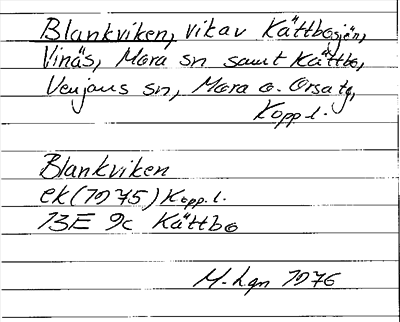 Blankviken, vik av Kättbosjön,
Vinäs, Mora sn samt Kättbo,
Venjans sn, Mora o. Orsa tg,
Kopp l.
Blankviken
ek (1975) Kopp. l.
13E 9c Kättbo
M. Lgn 1976